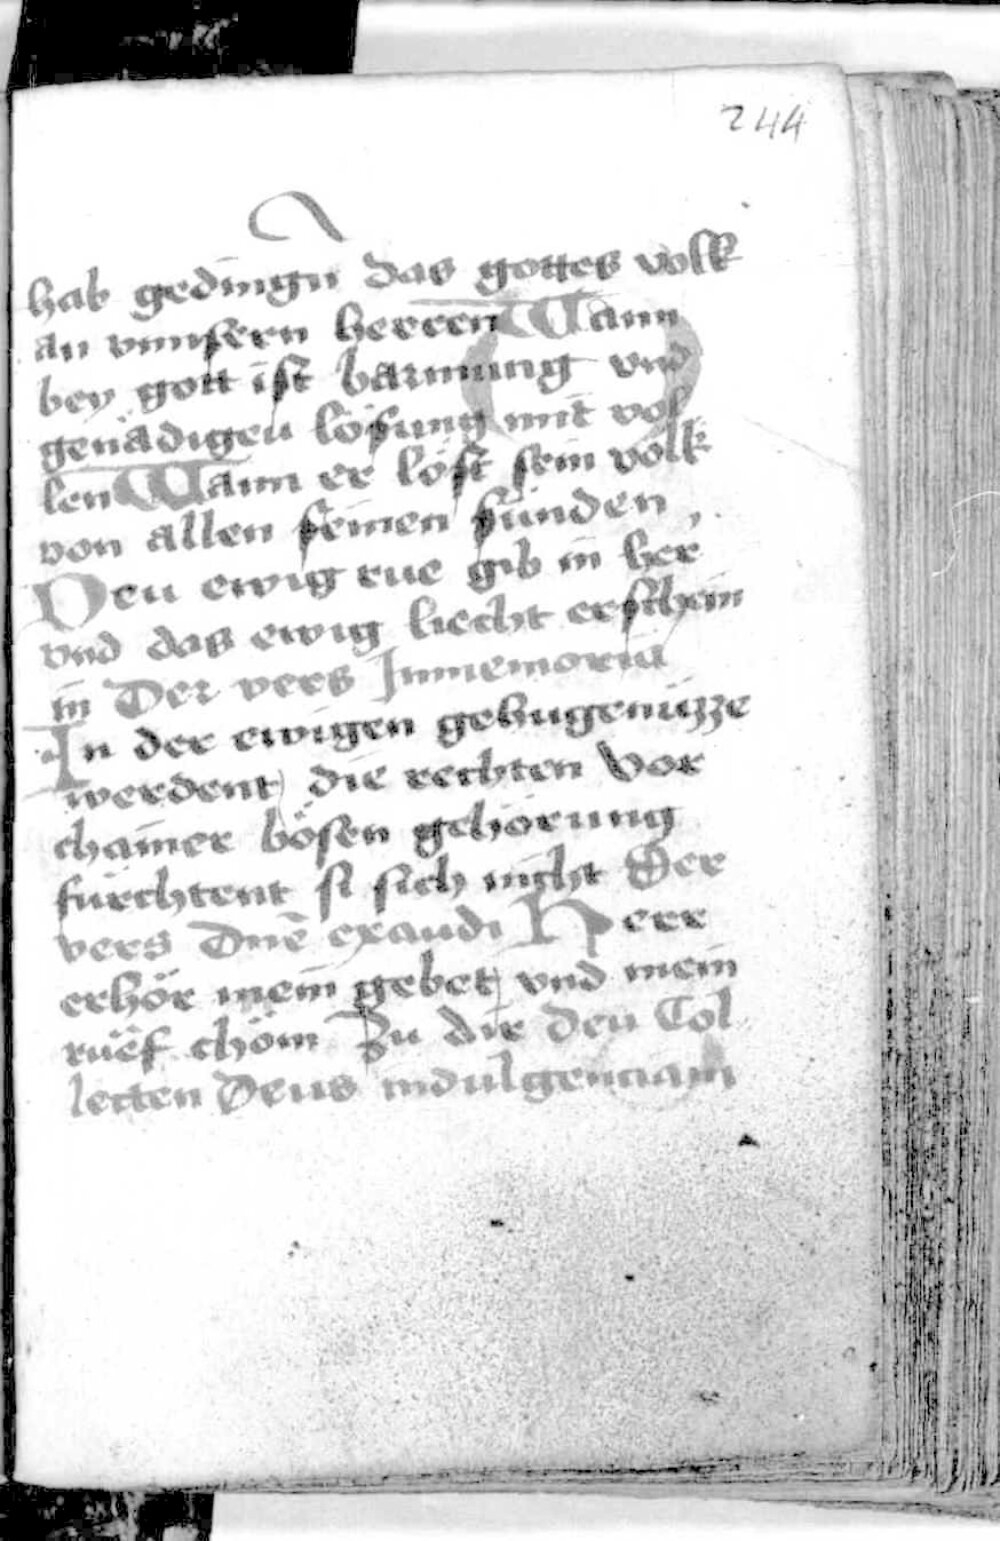 244
hab gedingn das gottes volk
an vnnsern herren Wann
bey gott ist barmung vnd
genädigen lösung mit vol
len Wann er löst sein volk
von allen seinen sünden,
Den ewig rue gib in her
vnd das ewig liecht erschein
in Der vers Inmemoria
In der ewigen gehugenüzze
werdent die rechten Vor
chainer bösen gehörung
fürchtent si sich nicht Der
vers Dnē exaudi Herr
erhör mein gebet vnd mein
rüef chöm Zu dir den Col
lecten Deus indulgenciam